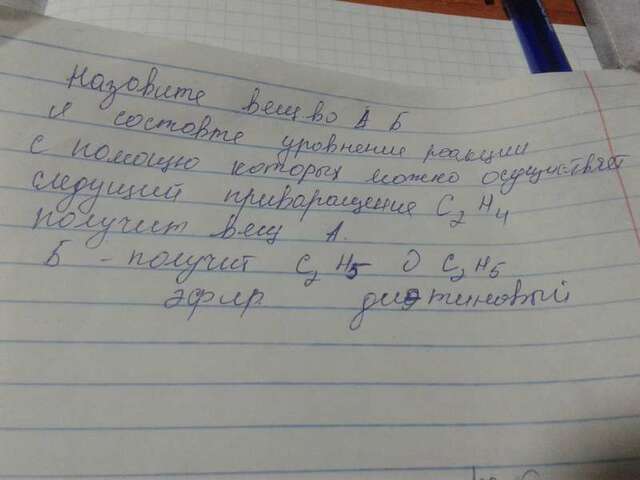 Назовите вещ во А Б
и составте уровнение реакции
с помощю которых можно осуществет
следущий приваращение C2 H4
получит вещ А.
Б - получит C2 H5 O C2 H5
эфир диэтиновый